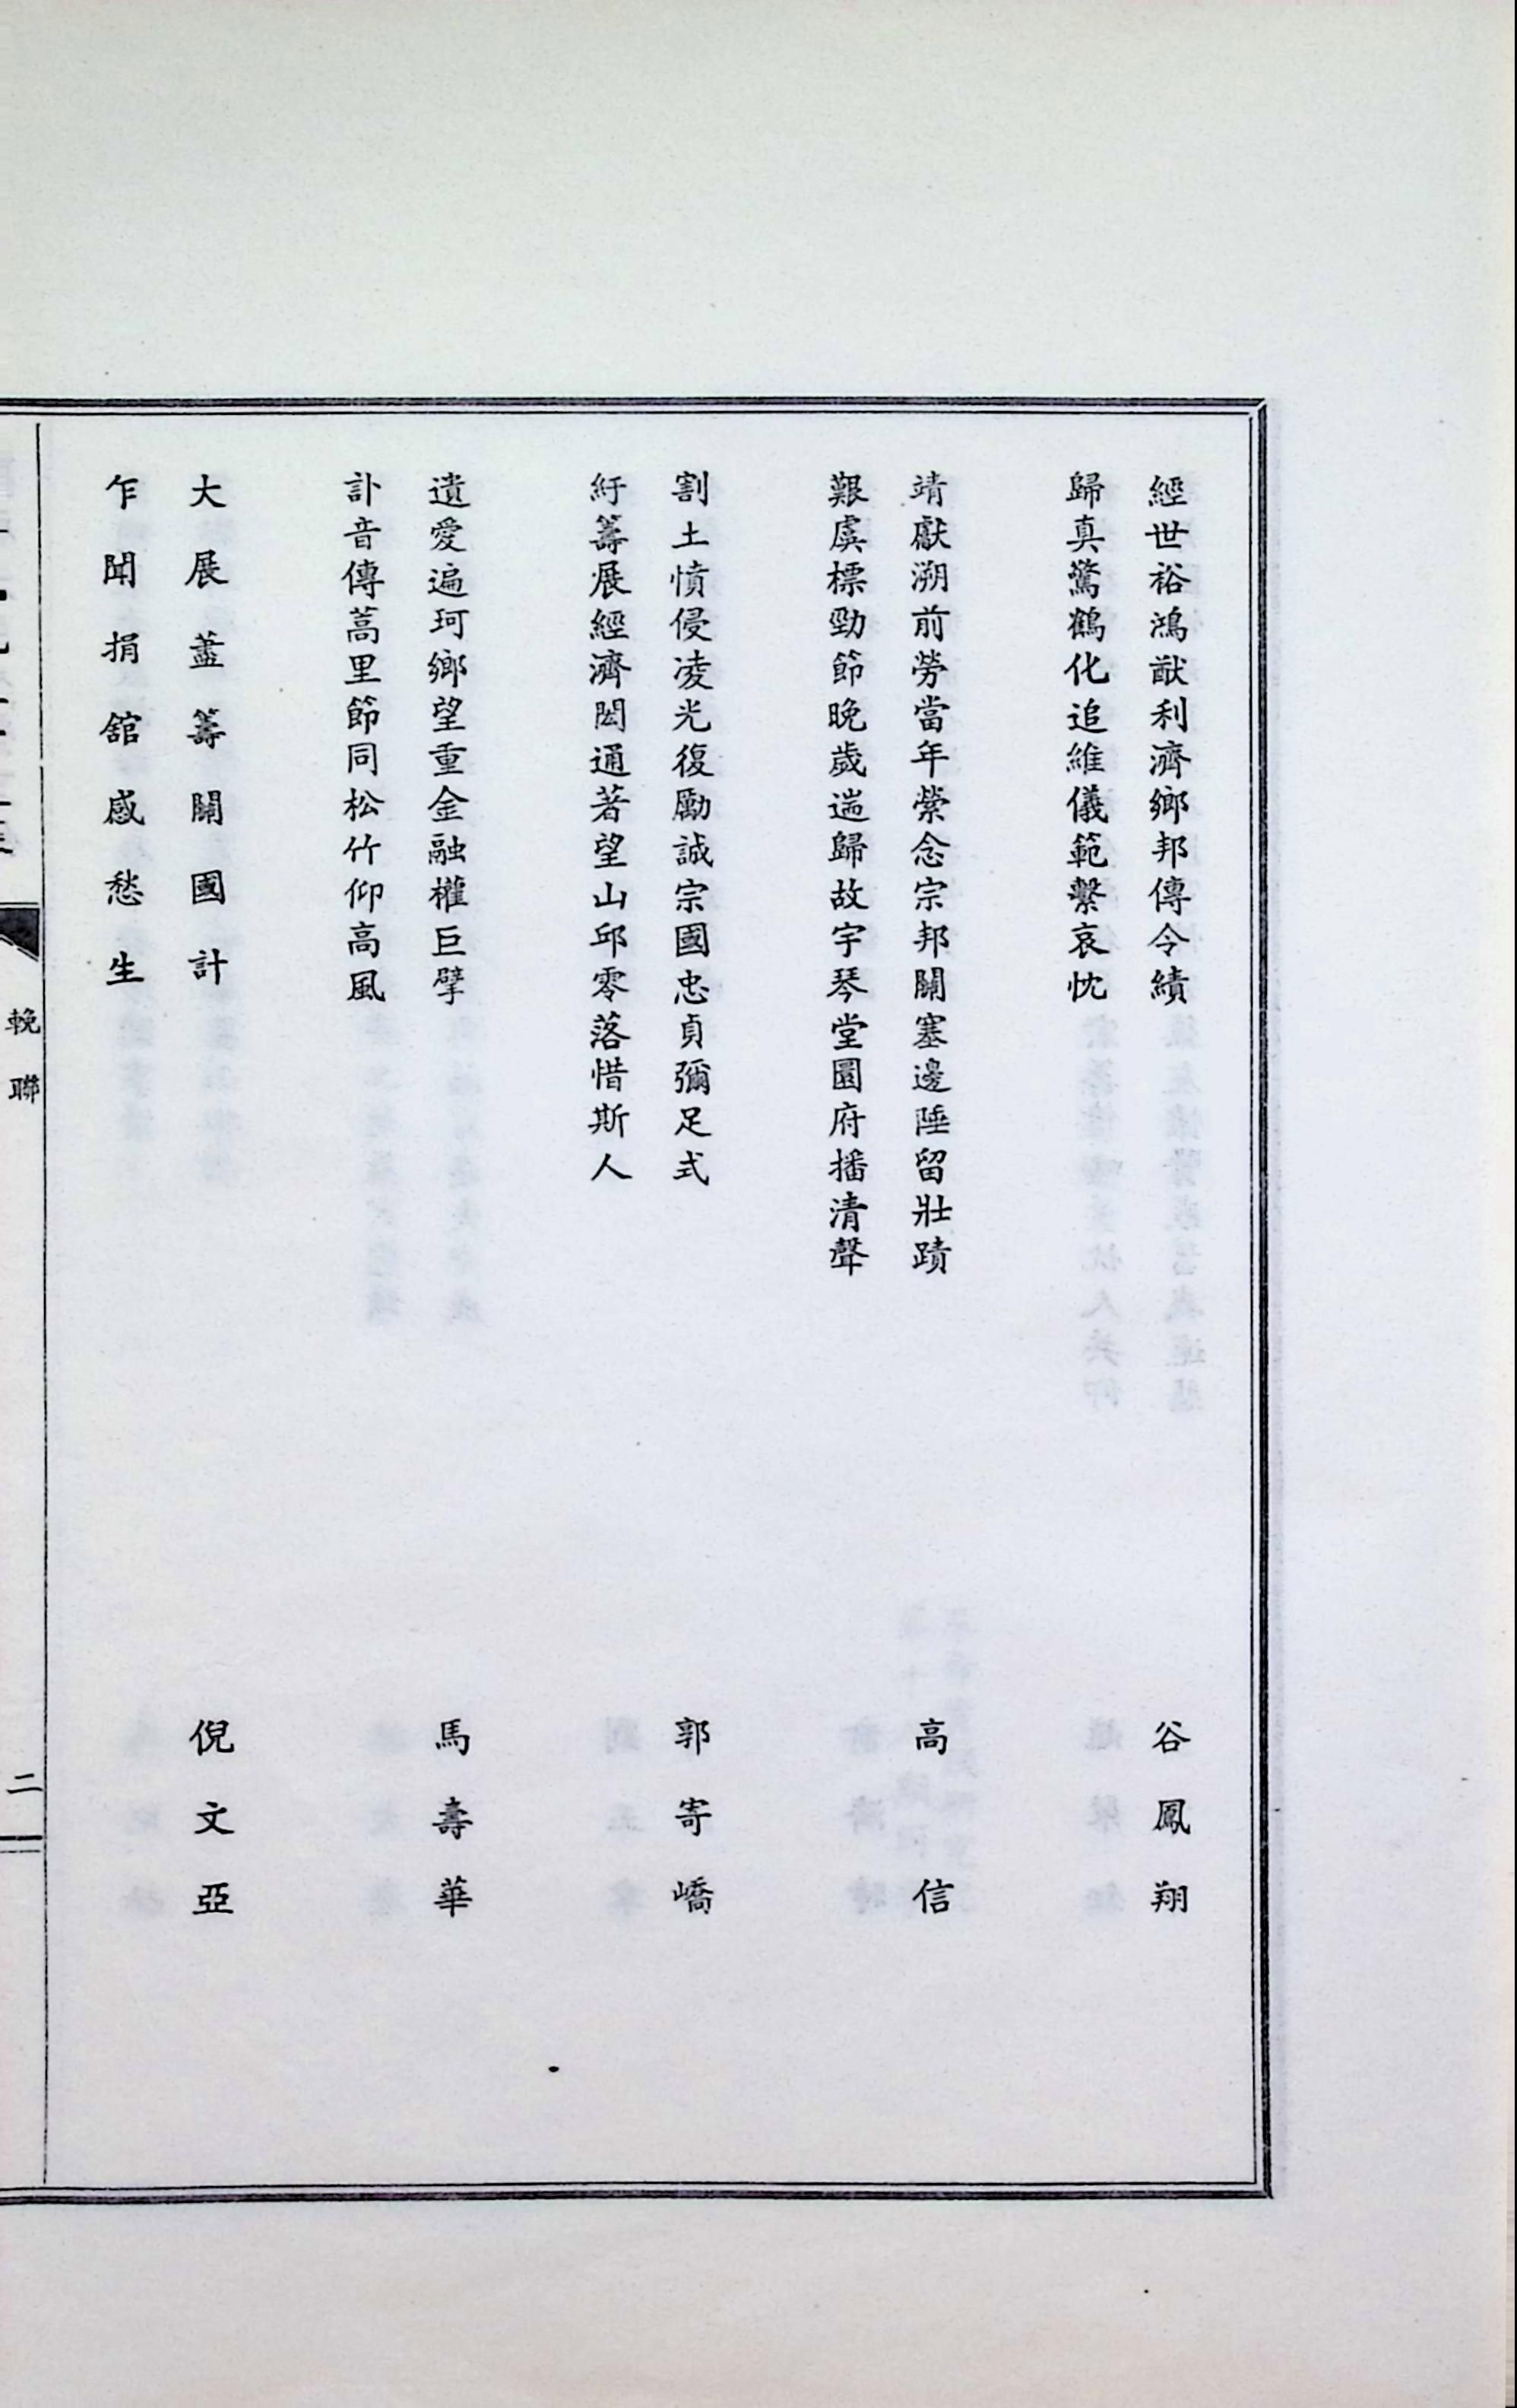 經世裕鴻猷利濟鄉邦傳令績
谷鳳翔
歸真驚鶴化追維儀範繫哀忱
靖獻溯前勞當年縈念宗邦關塞邊陲留壯蹟
高信
艱虞標勁節晚歲遄歸故宇琴堂園府播清聲
割土憤侵凌光復勵誠宗國忠貞彌足式
郭寄嶠
紆籌展經濟閎通著望山邱零落惜斯人
遺愛遍珂鄉望重金融權巨擘
馬壽華
訃音傳蒿里節同松竹仰高風
大展藎籌關國計
倪文亞
乍聞捐舘感愁生
輓聯
二